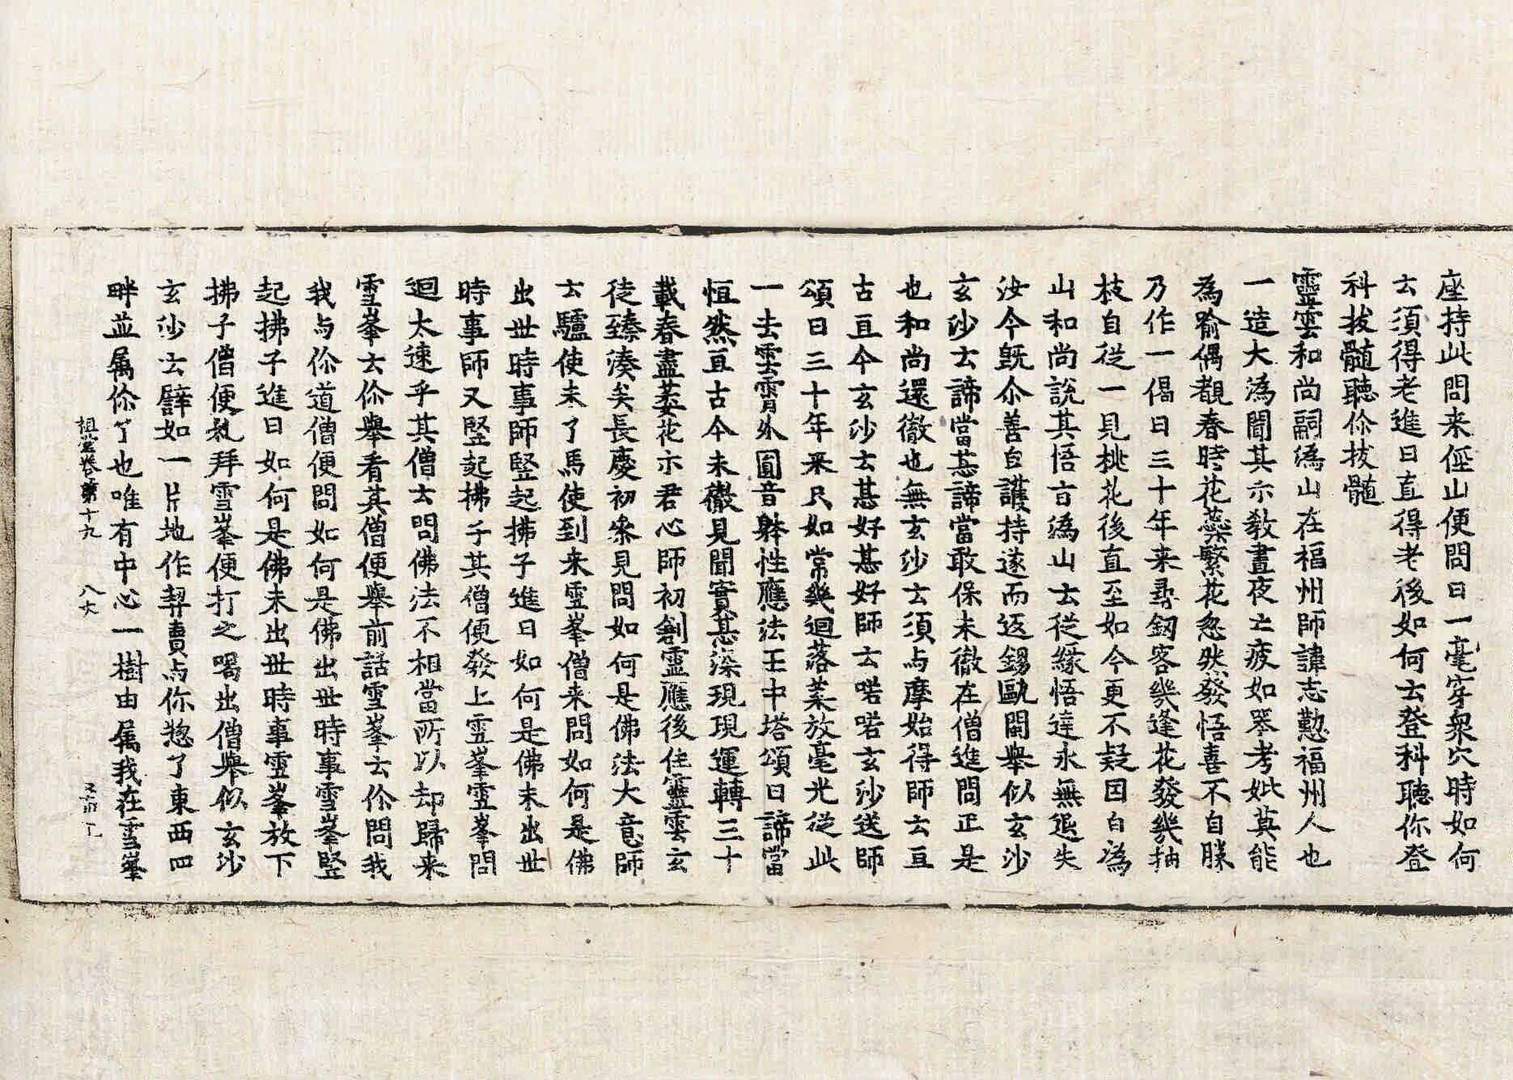 座持此問来俓山便問曰一毫穿衆穴時如何
云須得老進曰直得老後如何云登科聽你登
科拔髓聽你拔髓
靈雲和尚嗣溈山在福州師諱志懃福州人也
一造大溈聞其示教晝夜亡疲如喪考妣莫能
為喻偶覩春時花蘂繁花忽然發悟喜不自勝
乃作一偈曰三十年来尋釼客幾逢花發幾抽
枝自從一見桃花後直至如今更不疑因白溈
山和尚說其悟旨溈山云從緣悟達永無退失
汝今既尒善自護持遂而返錫甌閩舉似玄沙
玄沙云諦當甚諦當敢保未徹在僧進問正是
也和尚還徹也無玄沙云須与摩始得師云亘
古亘今玄沙云甚好甚好師云喏喏玄沙送師
頌曰三十年来只如常幾迴落葉放毫光從此
一去雲霄外圓音躰性應法王中塔頌曰諦當
恒然亘古今未徹見聞實甚深現現運轉三十
載春盡萎花示君心師初創靈應後住靈雲玄
徒臻湊矣長慶初叅見問如何是佛法大意師
云驢使未了馬使到来雪峯僧来問如何是佛
出世時事師竪起拂子進曰如何是佛未出世
時事師又竪起拂子其僧便發上雪峯雪峯問
迴太速乎其僧云問佛法不相當所以却歸来
雪峯云你舉看其僧便舉前話雪峯云你問我
我与你道僧便問如何是佛出世時事雪峯竪
起拂子進曰如何是佛未出世時事雪峯放下
拂子僧便礼拜雪峯便打之喝出僧舉似玄沙
玄沙云譬如一片地作契賣与你惣了東西四
畔並属你了也唯有中心一樹由属我在雪峯
祖堂卷第十九　八丈